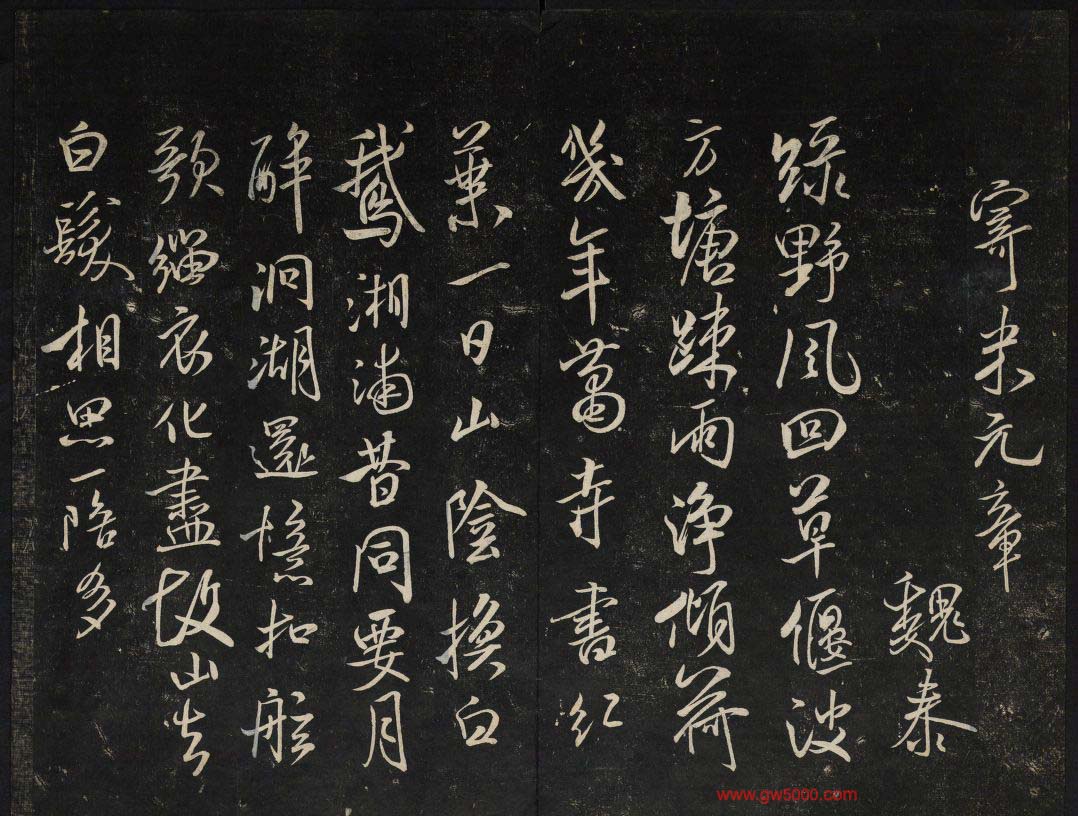 寄米元章
魏泰
綠野風回草偃波
方塘踈雨淨傾荷
幾年蕭寺書紅
葉一日山陰換白
鵝湘浦昔同要月
醉洞湖還憶扣舷
歌緇衣化盡故山去
白髮相思一陪多
www.gw5000.com